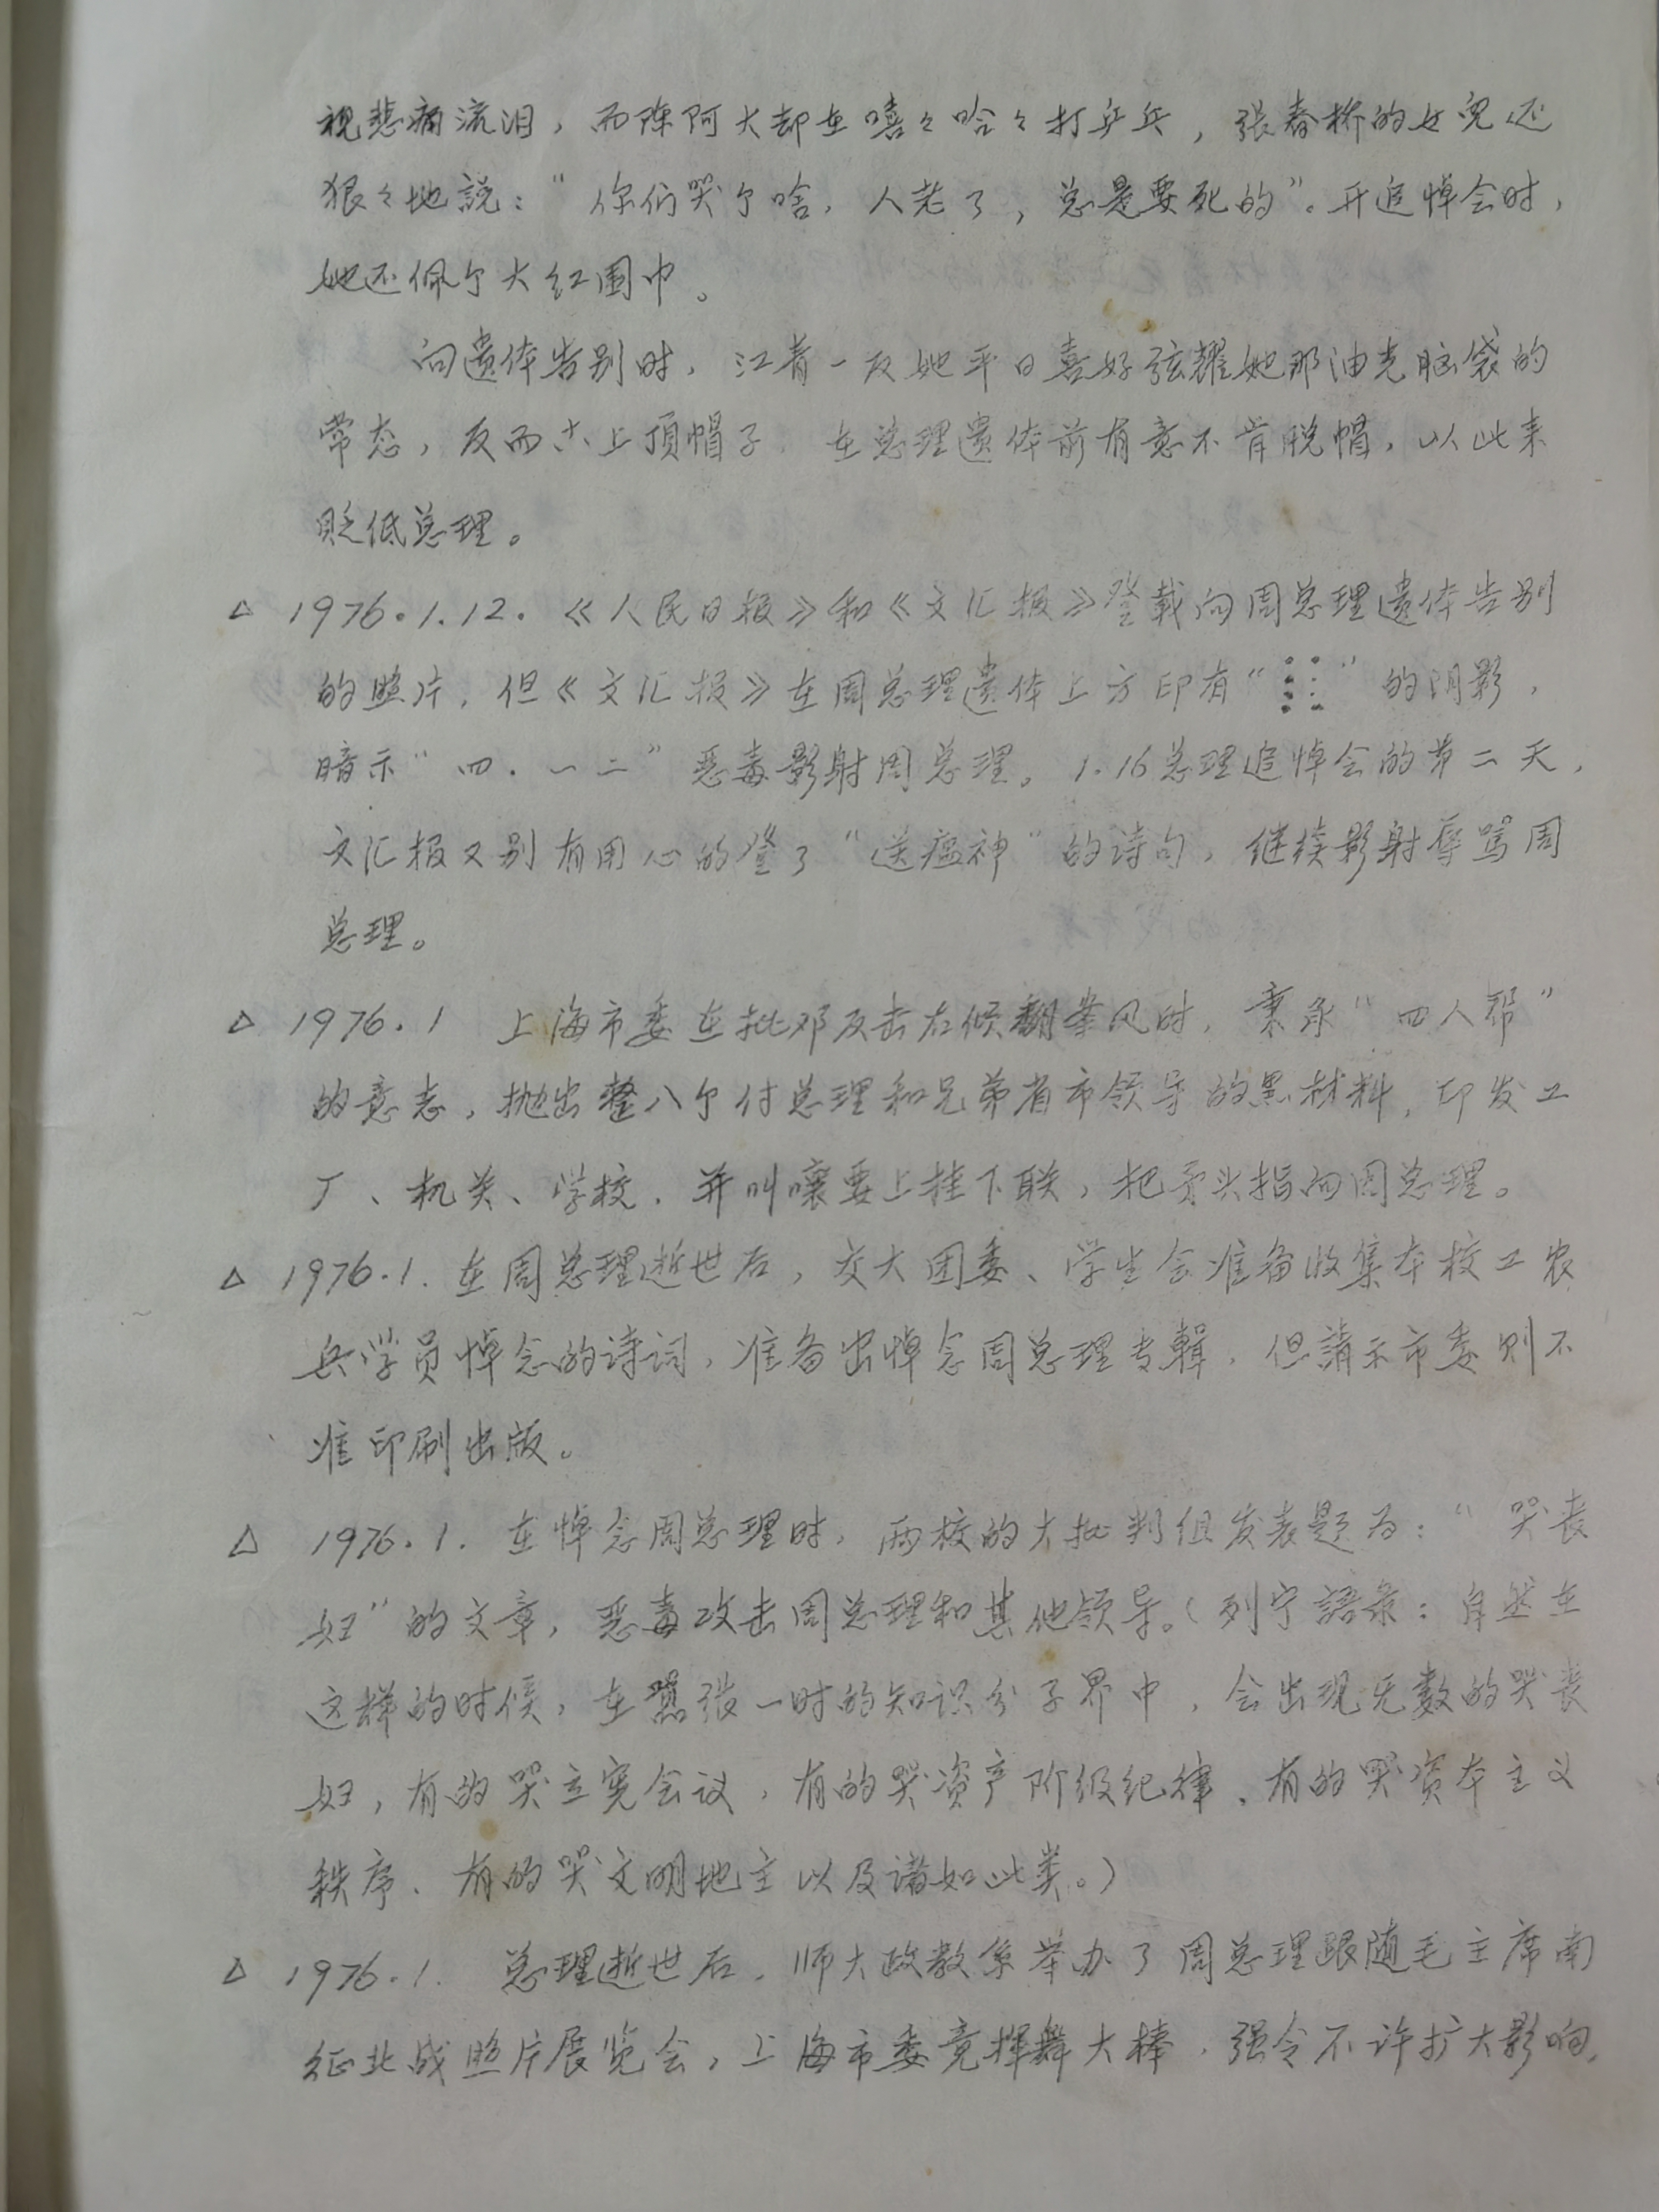 视悲痛流泪，而陈阿大却在嘻々哈々打乒乓，张春桥的女児还
狠々地説：“你们哭个啥，人老了，总是要死的”。开追悼会时，
她还佩个大红围巾。
向遗体告别时，江青一反她平日喜好弦耀她那油光脑袋的
常态，反而上顶帽子，在总理遗体前有意不肯脱帽，以此来
贬低总理。
△ 1976.1.12.《人民日报》和《文汇报》登载向周总理遗体告别
的照片，但《文汇报》在周总理遗体上方印有“⋮⋮”的阴影，
暗示“四．一二”恶毒影射周总理。1.16总理追悼会的第二天，
文汇报又别有用心的登了“送瘟神”的诗句，继续影射辱骂周
总理。
△ 1976.1 上海市委在批邓反击右倾翻案风时，秉承“四人帮”
的意志，抛出整八个付总理和兄弟省市领导的黑材料，印发工
厂、机关、学校，并叫嚷要上挂下联，把矛头指向周总理。
△ 1976.1. 在周总理逝世后，交大团委、学生会准备收集本校工农
兵学员悼念的诗词，准备出悼念周总理专輯，但請示市委则不
准印刷出版。
△ 1976.1. 在悼念周总理时，两校的大批判组发表题为：“哭丧
妇”的文章，恶毒攻击周总理和其他领导。（列宁語录：自然在
这样的时候，在嚣张一时的知识分子界中，会出现无数的哭丧
妇，有的哭立宪会议，有的哭资产阶级纪律、有的哭资本主义
秩序、有的哭文明地主以及诸如此类。）
△ 1976.1. 总理逝世后，师大政教系举办了周总理跟随毛主席南
征北战照片展览会，上海市委竟揮舞大棒，强令不许扩大影响，